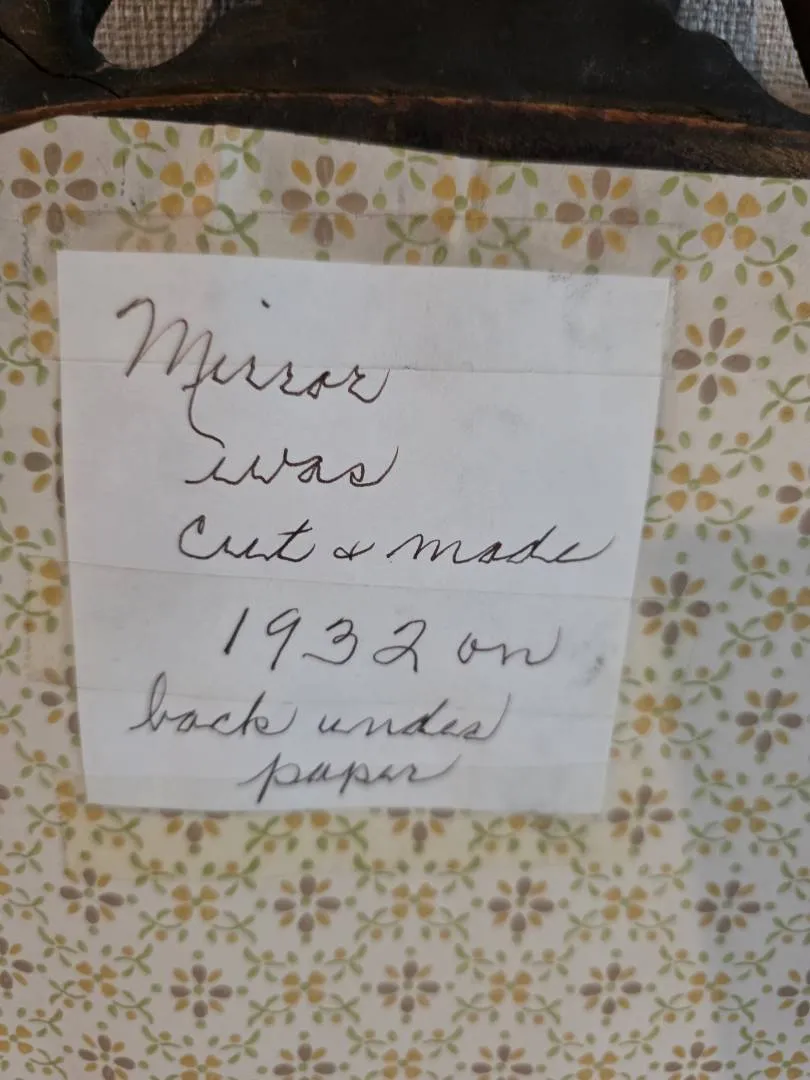 Mirror
was
Cut & made
1932 on
back under
paper